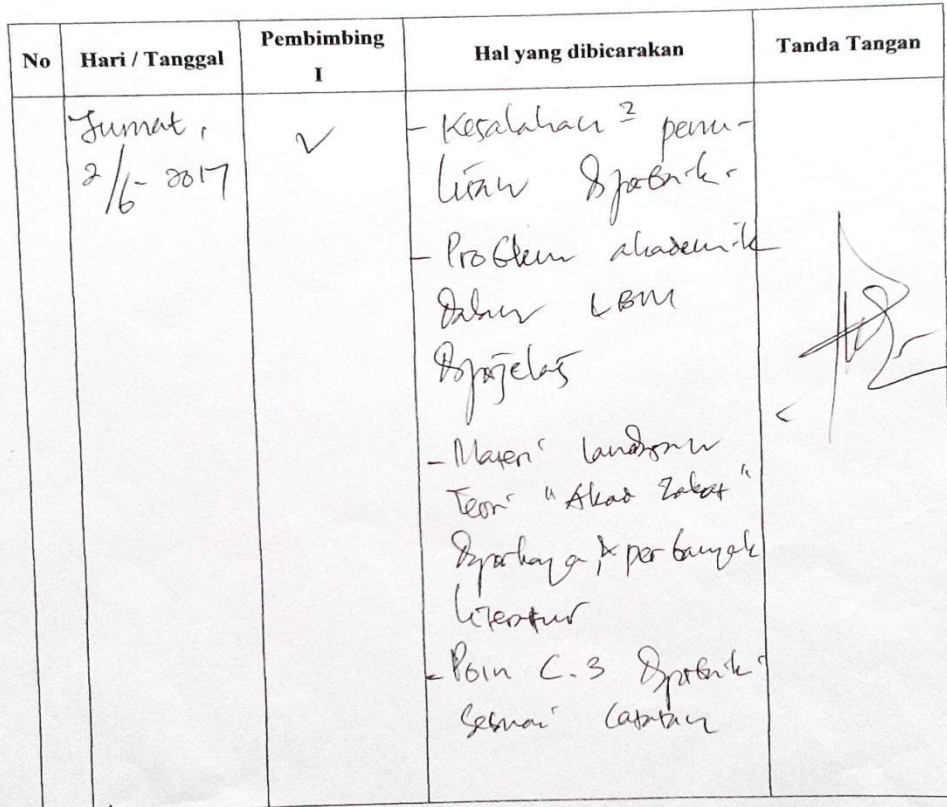 No
Hari / Tanggal
Pembimbing
I
Hal yang dibicarakan
Tanda Tangan
Jumat,
2/6-2017
- Kesalahan² penu-
lisan diperbaiki.
- Problem akademik
dalam LBM
diperjelas
- Materi landasan
Teori "Akad Zakat"
diperkaya, & perbanyak
literatur
- Poin C.3 diperbaiki
sesuai catatan